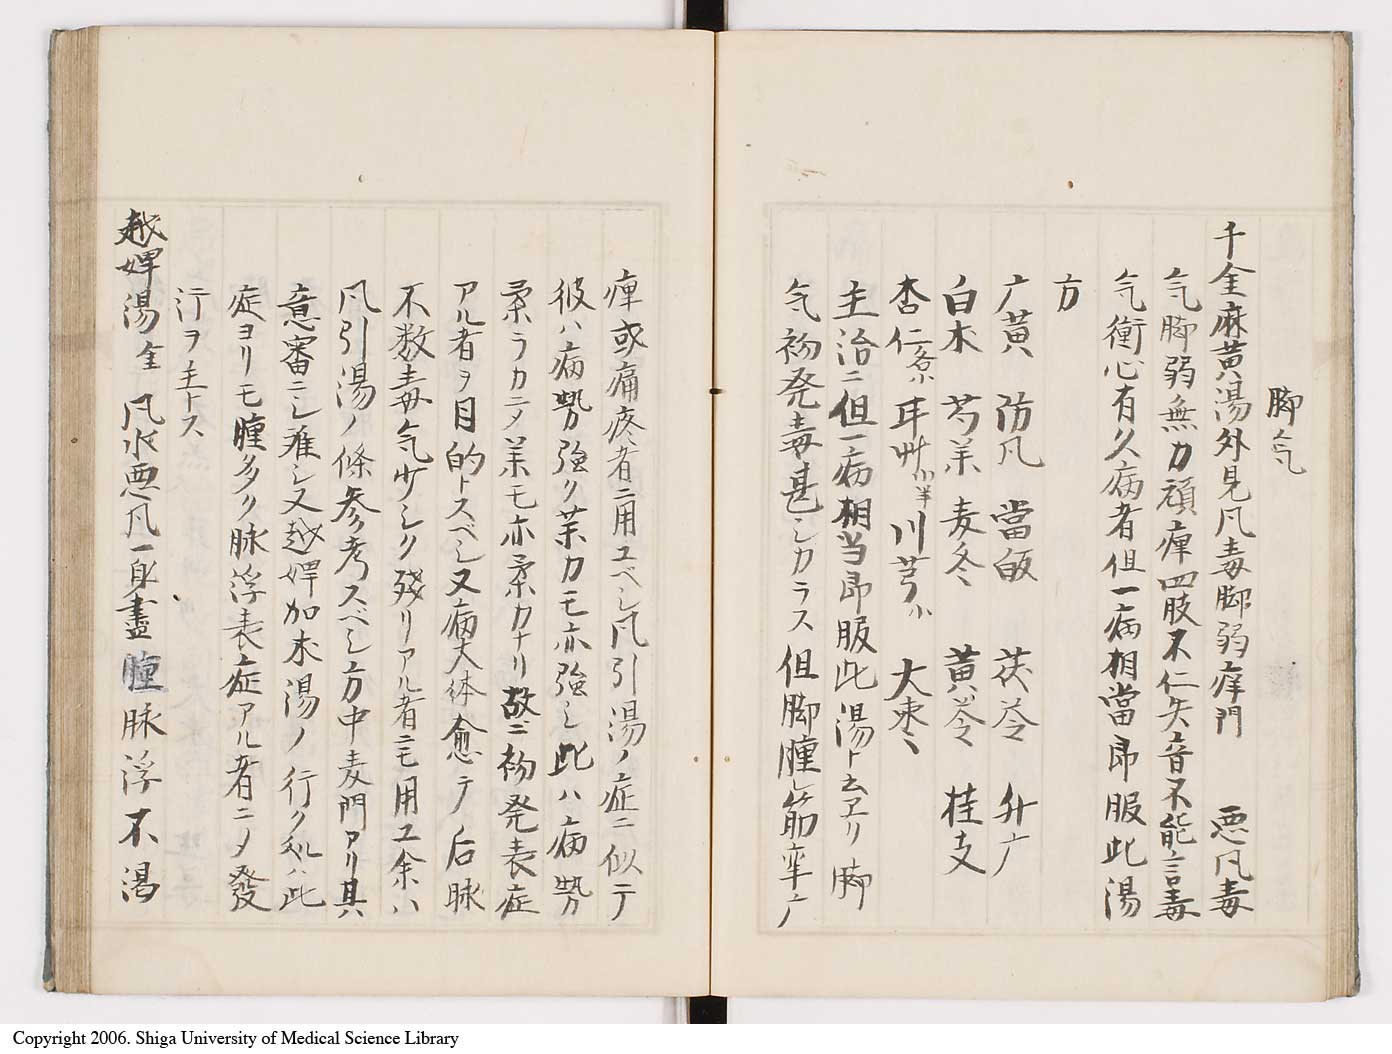 脚气
千金麻黄湯外見凡毒脚弱痺門　悪凡毒
气脚弱無力頑痺四肢不仁失音不能言毒
气衝心有久病者但一病相當即服此湯
方
广黄　防凡　當皈　茯苓　升广
白朮　芍薬　麦冬　黄芩　桂支
杏仁各小　甘艸小半　川芎小　大枣
主治ニ但一病相当即服此湯ト云ヱリ脚
气初発毒甚シカラス但脚腫レ筋牽广
痺或痛疼者ニ用ユベシ凡引湯ノ症ニ似テ
彼ハ病勢強ク薬力モ亦強シ此ハ病勢
柔ラカニメ薬モ亦柔カナリ故ニ初発表症
アル者ヲ目的トスベシ又病大体愈テ后脉
不数毒气少シク残リアル者ニモ用ユ余ハ
凡引湯ノ條参考スベシ方中麦門アリ其
意審ニシ難シ又越婢加朮湯ノ行ク処ハ此
症ヨリモ腫多ク脉浮表症アル者ニノ發
行ヲ主トス
越婢湯金　凡水悪凡一身盡腫脉浮不渇